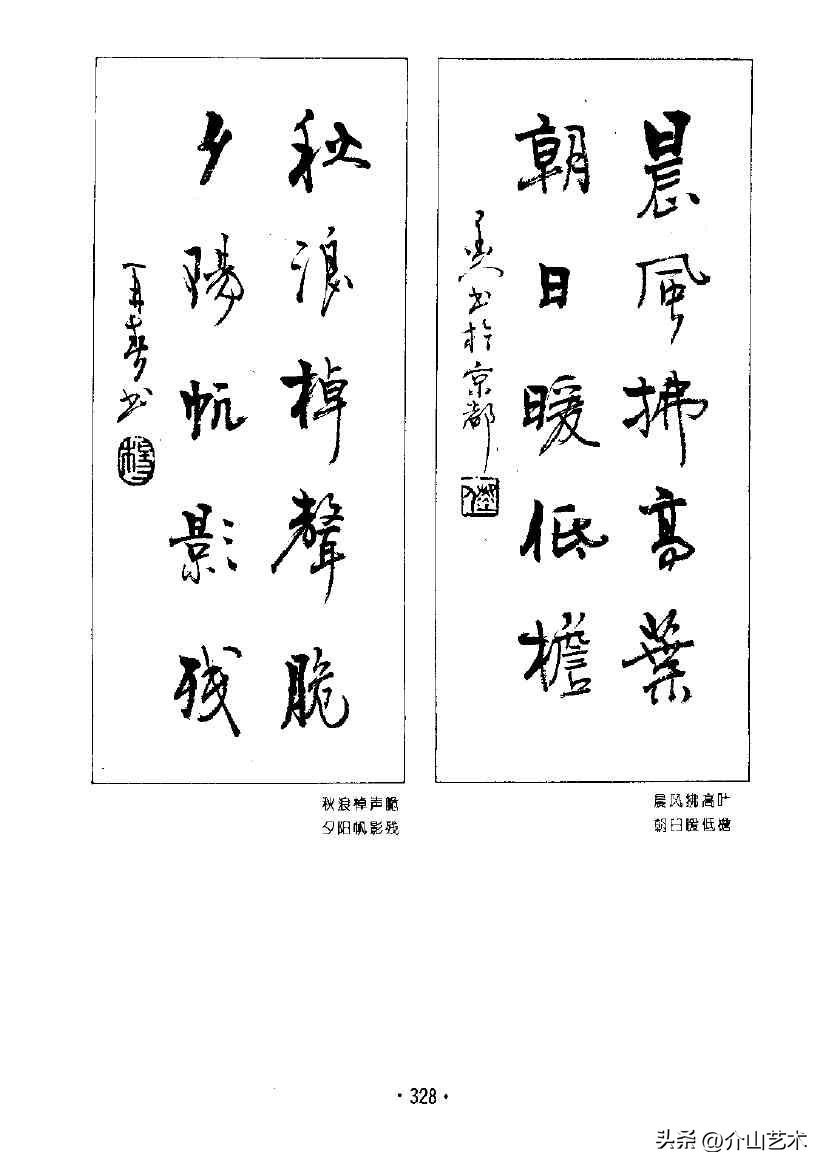 晨風拂高葉
朝日暖低檐
書於京都
秋浪棹聲脆
夕陽帆影残
春书
晨风拂高叶
朝日暖低檐
秋浪棹声脆
夕阳帆影残
·328·
头条@介山艺术